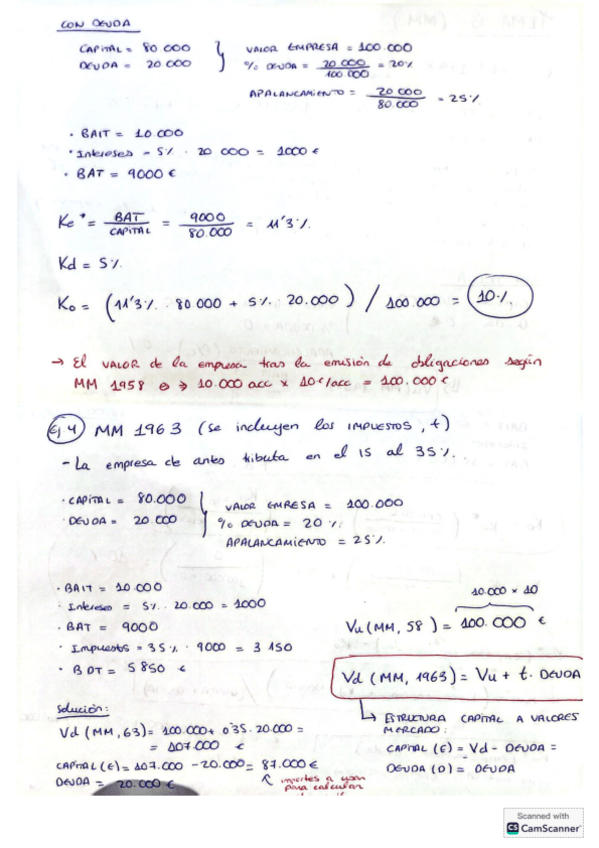 CON DEUDA
CAPITAL = 80 000
DEUDA = 20 000
VALOR EMPRESA = 100.000
% DEUDA = 20.000 / 100.000 = 20%
APALANCAMIENTO = 20 000 / 80 000 = 25%
· BAIT = 10.000
· Intereses = 5% · 20 000 = 1000 €
· BAT = 9000 €
Ke* = BAT / CAPITAL = 9000 / 80.000 = 11'3%
Kd = 5%
Ko = (11'3% · 80.000 + 5% · 20.000) / 100.000 = 10%
→ El VALOR de la empresa tras la emisión de obligaciones según
MM 1958 → 10.000 acc x 10€/acc = 100.000 €
Ej 4 MM 1963 (se incluyen los IMPUESTOS, t)
- La empresa de antes tributa en el IS al 35%.
· CAPITAL = 80.000
· DEUDA = 20.000
VALOR EMPRESA = 100.000
% DEUDA = 20%
APALANCAMIENTO = 25%
· BAIT = 10.000
· Intereses = 5% · 20.000 = 1000
· BAT = 9000
· Impuestos = 35% · 9000 = 3 150
· BDT = 5850 €
10.000 x 10
Vu (MM, 58) = 100.000 €
Vd (MM, 1963) = Vu + t. DEUDA
↳ ESTRUCTURA CAPITAL A VALORES
MERCADO:
CAPITAL (E) = Vd - DEUDA =
DEUDA (D) = DEUDA
Solución:
Vd (MM, 63) = 100.000 + 0'35 · 20.000 =
= 107.000 €
CAPITAL (E) = 107.000 - 20.000 = 87.000 €
DEUDA = 20.000 €
importes a usar
para calcular
Scanned with
CS CamScanner